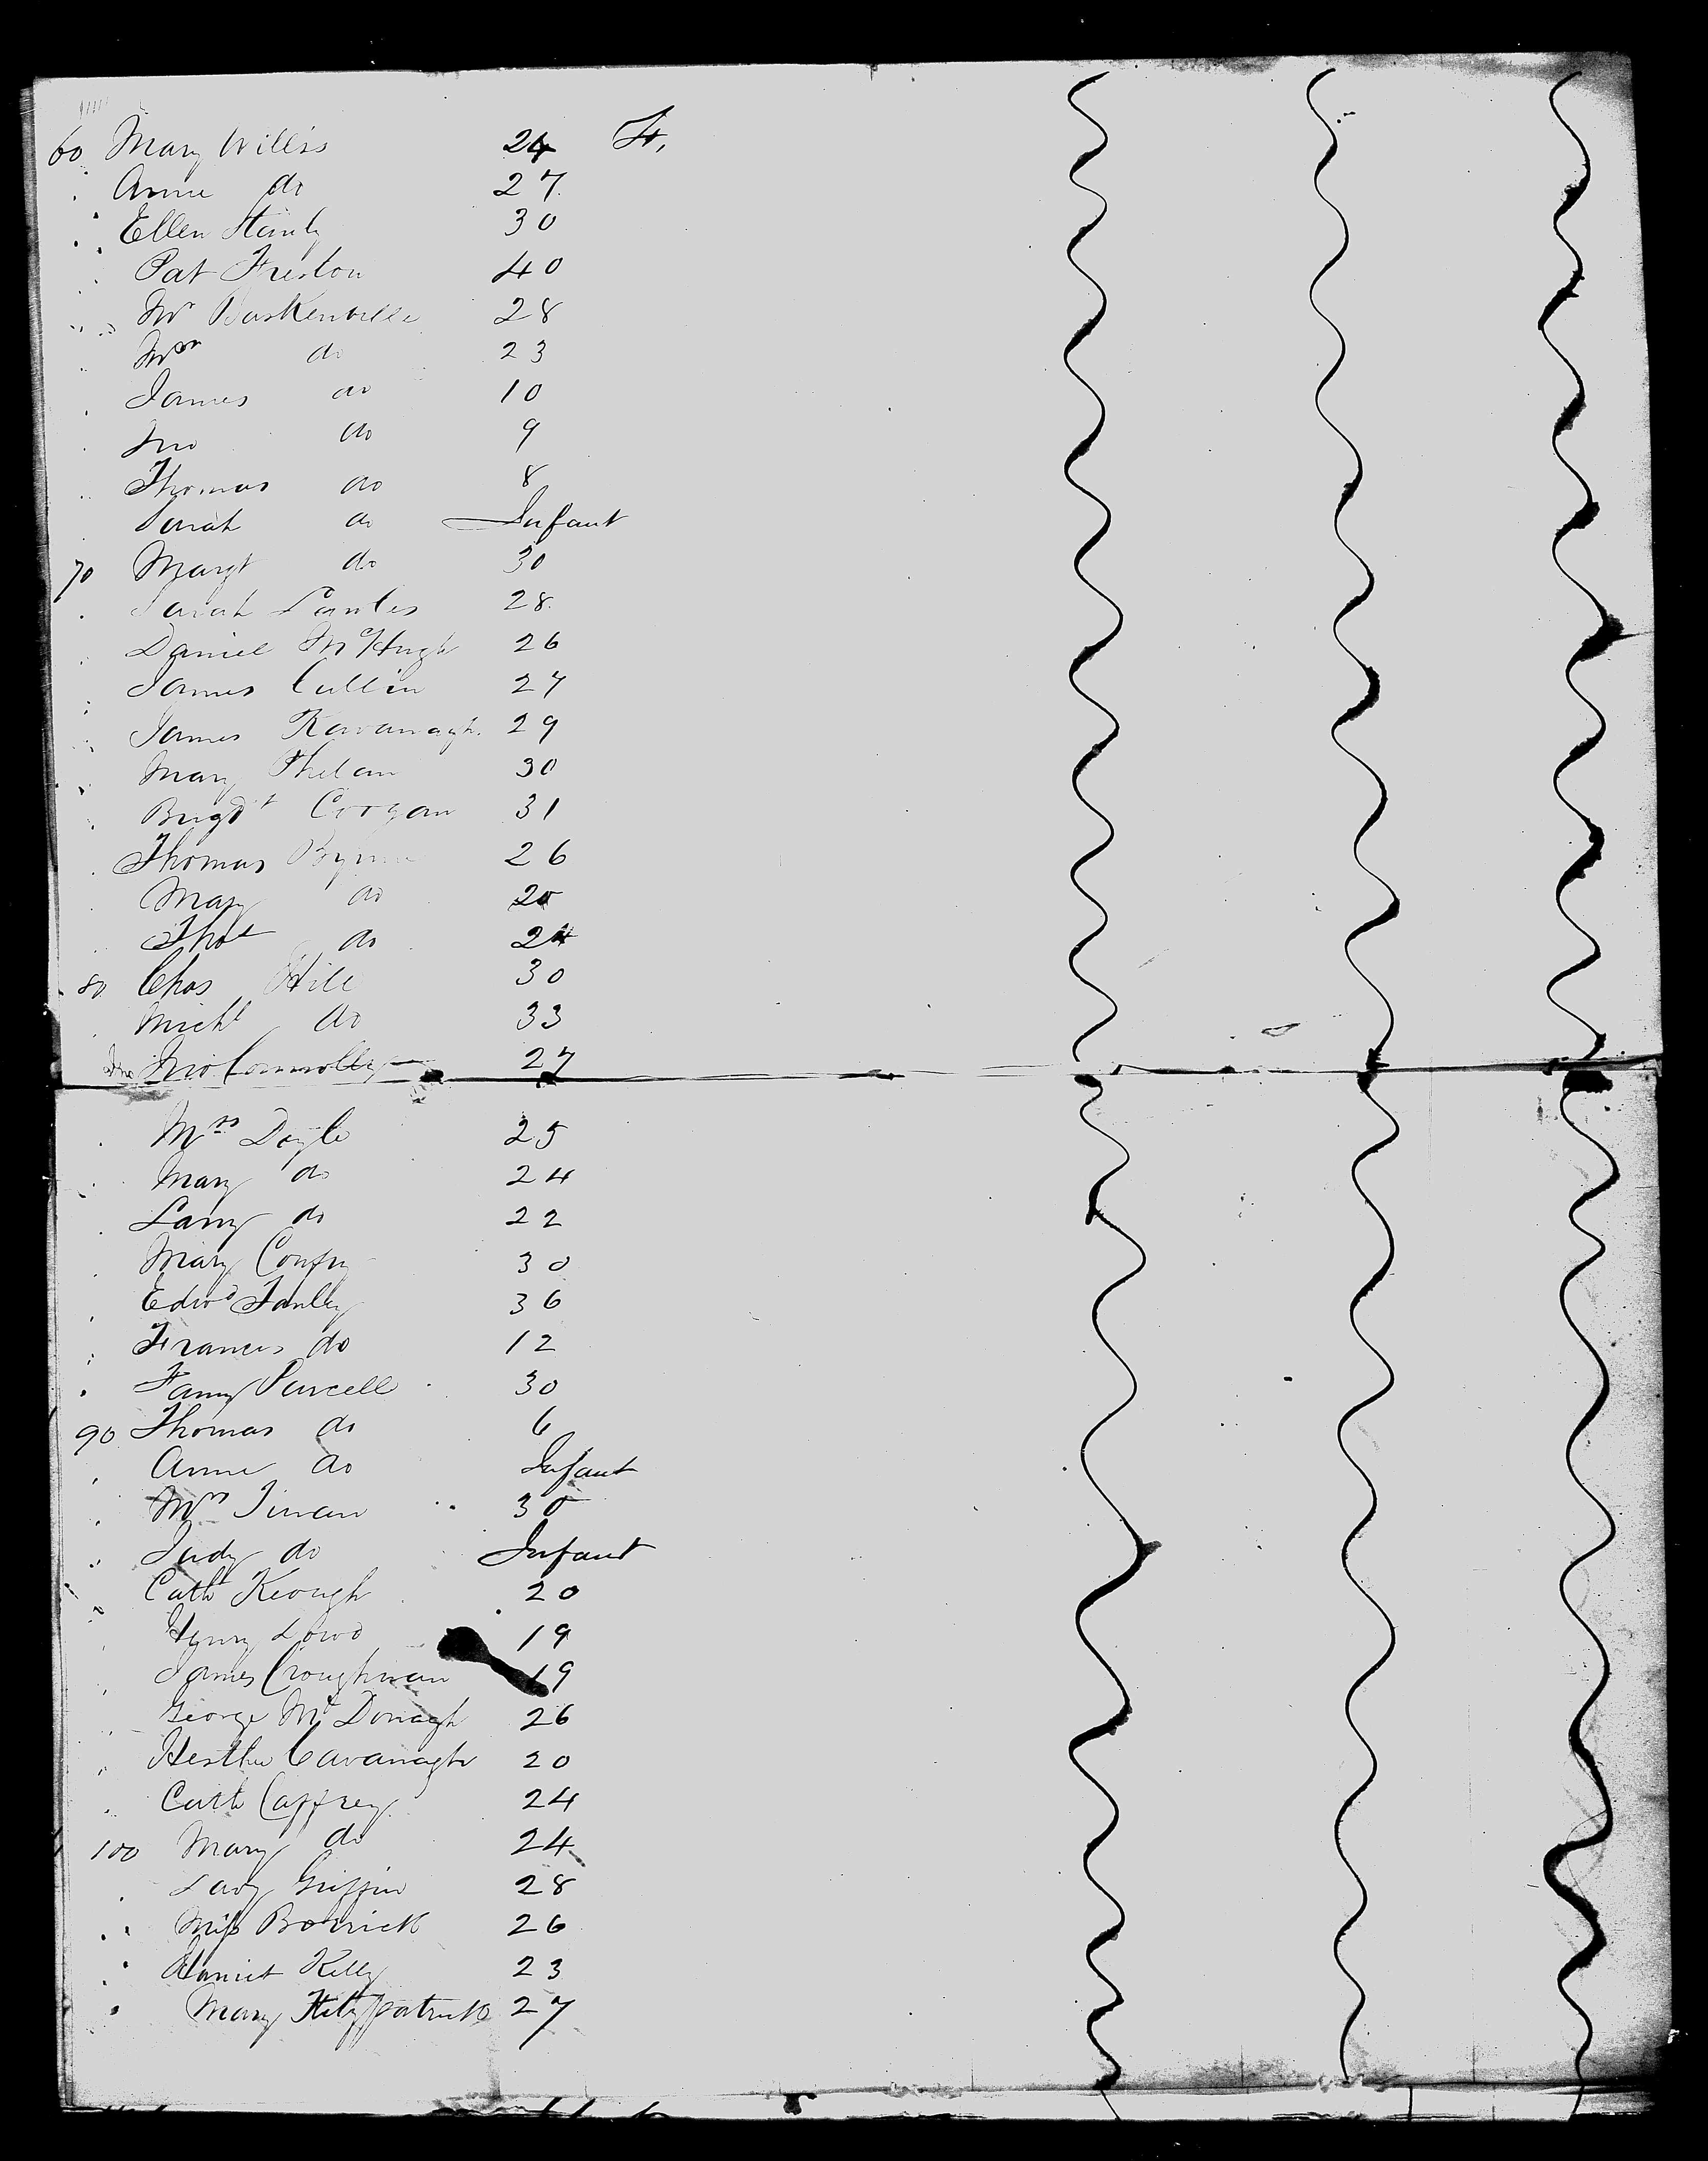 60 Mary Willis 24 F,
Anne do 27
Ellen Stanly 30
Pat Freston 40
Mr Baskerville 28
Mrs do 23
James do 10
Jno do 9
Thomas do 8
Sarah do Infant
70 Margt do 30
Sarah 28
Daniel McHugh 26
James Cullin 27
James Kavanagh 29
Mary Phelan 30
Brigdt Coogan 31
Thomas Byrne 26
Mary do 20
do 24
80 Chas Hill 30
Michl do 33
Jno Connolly 27
Mrs Doyle 25
Mary do 24
Larry do 22
Mary 30
Edwd 36
Frances do 12
Fanny Purcell 30
90 Thomas do 6
Anne do Infant
Mrs 30
Judy do Infant
Cath Keough 20
Henry Dowd 19
James Croughwan 19
George McDonagh 26
Hesther Cavanagh 20
Cath Caffrey 24
100 Mary do 24
Griffin 28
Miss 26
Harriet Kelly 23
Mary Fitzpatrick 27